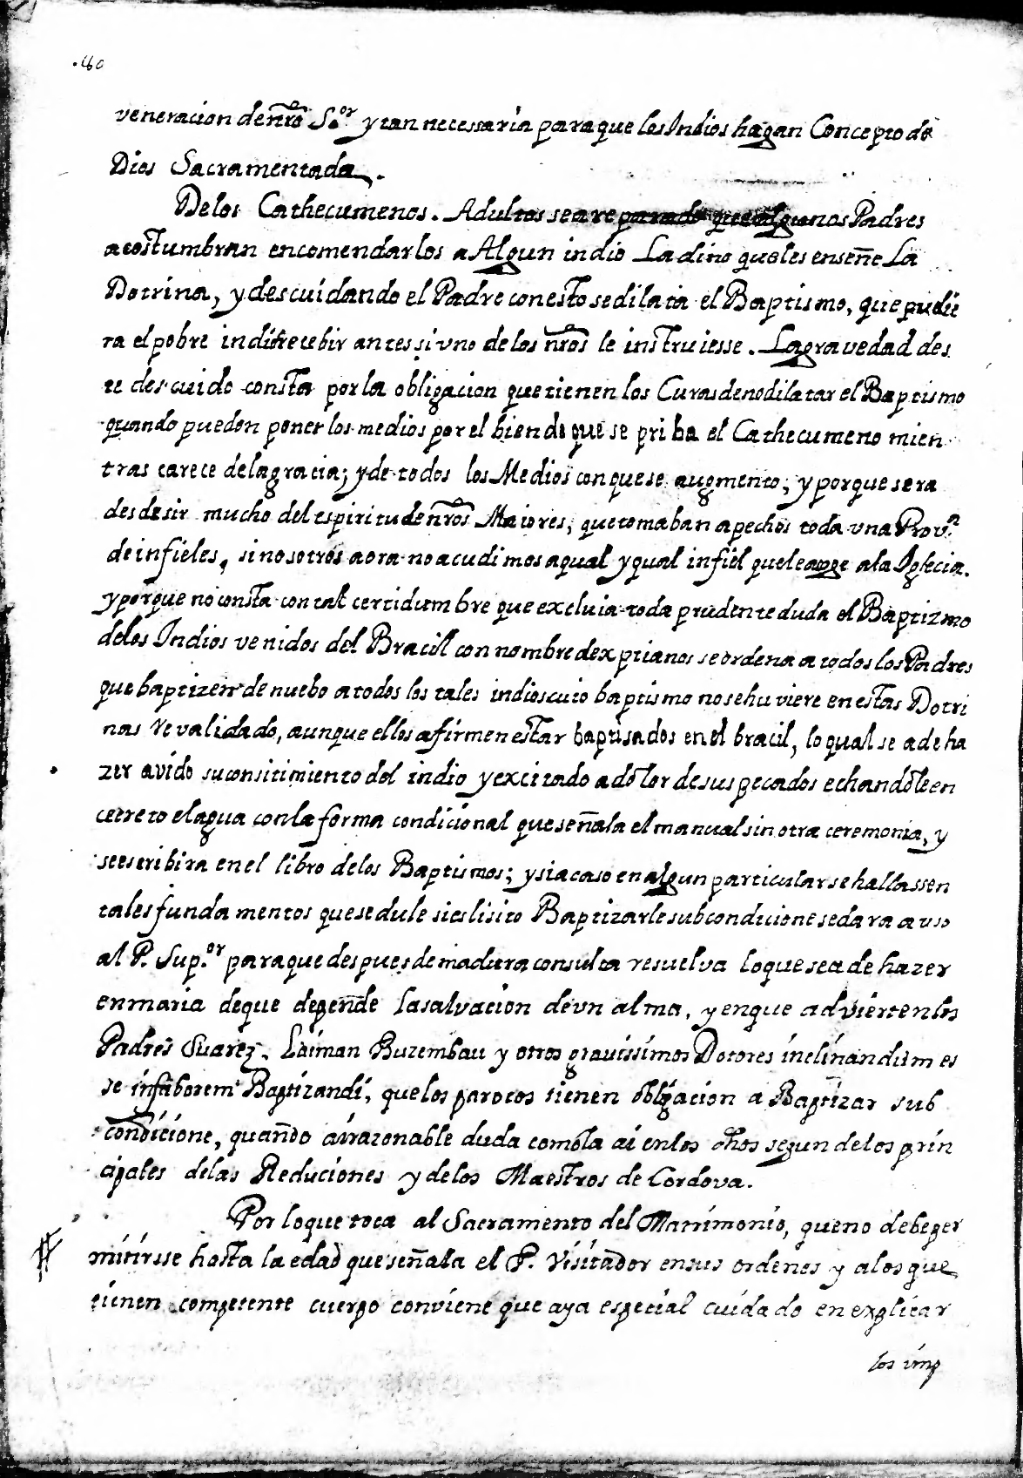 .40
veneracion de nr̃o S.or y tan necessaria para que los Indios hagan Concepto de
Dios Sacramentado.
De los Cathecumenos. Adultos se a reparado que algunos Padres
acostumbran encomendarlos a Algun indio Ladino que les enseñe La
Dotrina, y descuidando el Padre con esto se dilata el Baptismo, que pudie
ra el pobre indio recibir antes si uno de los nr̃os le instruiesse. La gravedad des
te descuido consta por la obligacion que tienen los Curas de no dilatar el Baptismo
quando pueden poner los medios por el bien de que se priba el Cathecumeno mien
tras carece de la gracia; y de todos los Medios con que se augmento; y porque sera
desdesir mucho del espiritu de nr̃os Maiores, que tomaban a pechos toda vna Prov.a
de infieles, si nosotros aora no acudimos a qual y qual infiel que le a la Iglecia.
y porque no consta con tal certidumbre que excluia toda prudente duda el Baptizmo
de los Indios venidos del Bracil con nombre de xptianos se ordena a todos los Padres
que baptizen de nuebo a todos los tales indios cuio baptismo no se huviere en estas Dotri
nas revalidado, aunque ellos afirmen estar baptisados en el bracil, lo qual se a de ha
zer avido su consitimiento del indio y excitado a dolor de sus pecados echandole en
cecreto el agua con la forma condicional que señala el manual sin otra ceremonia, y
se escribira en el libro de los Baptismos; y si acaso en algun particular se hallassen
tales fundamentos que se dude si es lisito Baptizarle sub condicione se dara aviso
al P. Sup.or para que despues de madura consulta resuelva lo que sea de hazer
en maria de que depende la salvacion de un alma, y en que advierten los
Padres Suarez, Laiman Buzembau y otros gravissimos Dotores inclinandum es
se in faborem Baptizandi, que los parocos tienen obligacion a Baptizar sub
condicione, quando ai razonable duda como la ai en los dhos segun de los prin
cipales de las Reduciones y de los Maestros de Cordova.
Por lo que toca al Sacramento del Matrimonio, que no debe per
mitirsse hasta la edad que señala el P. Visitador en sus ordenes y a los que
tienen competente cuerpo conviene que aya especial cuidado en explicar
los imp